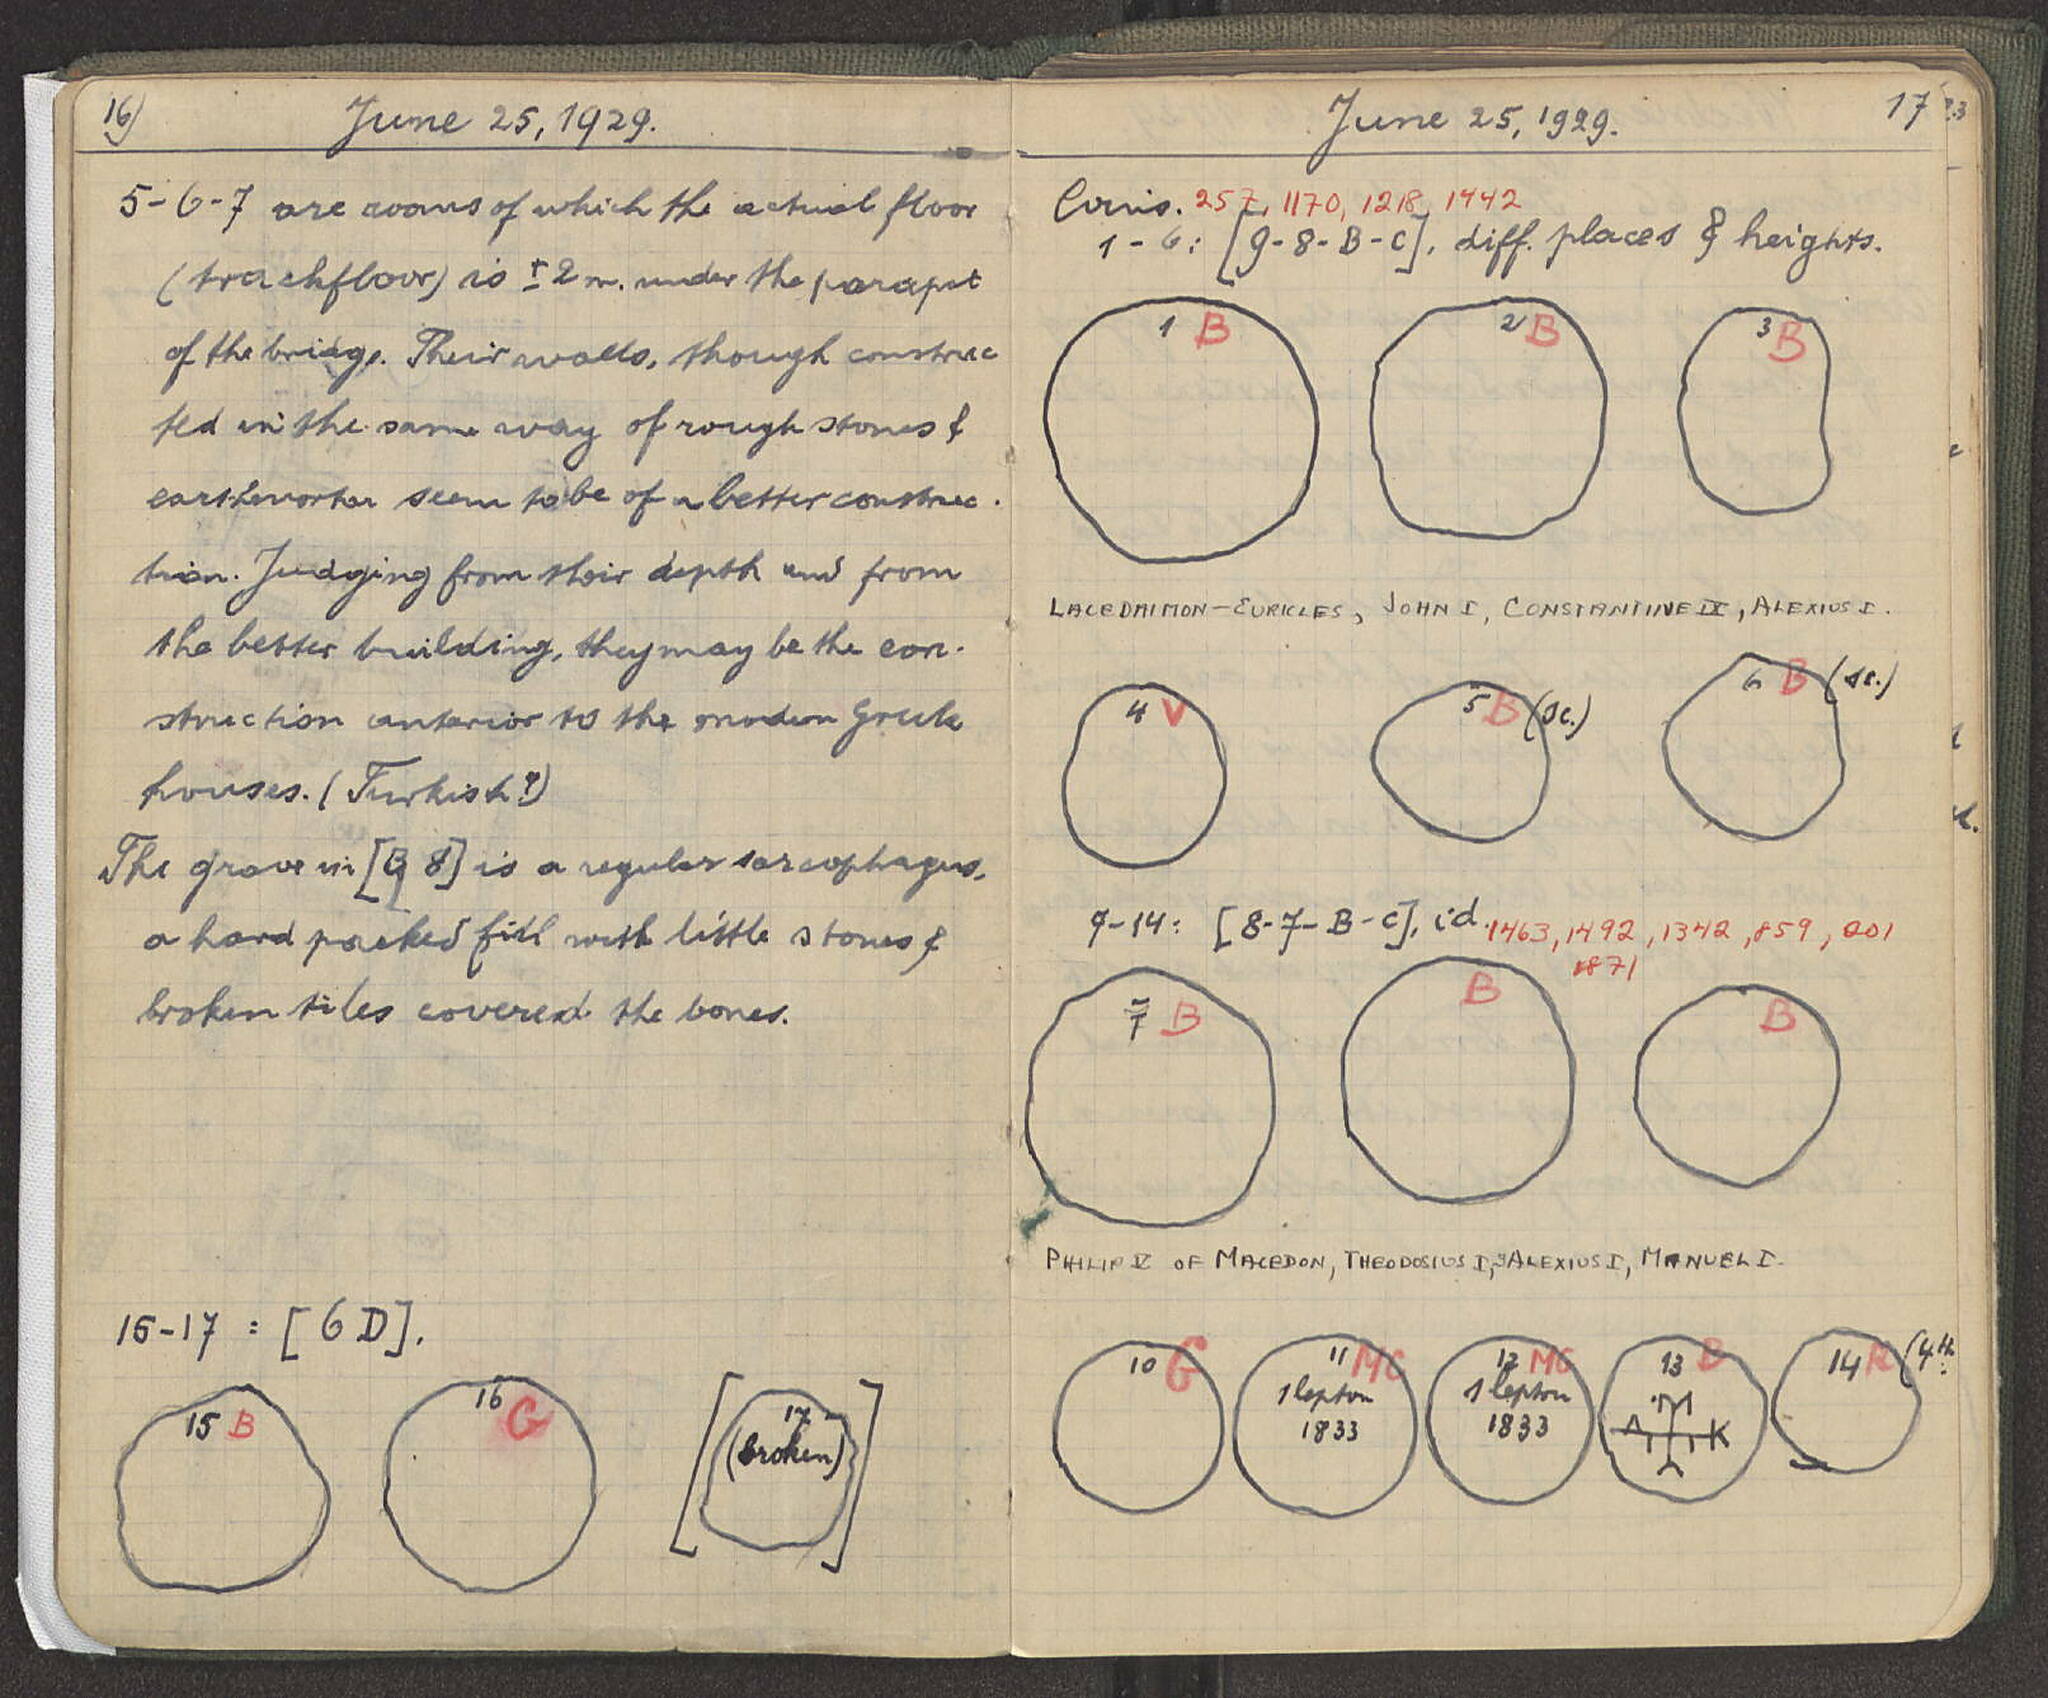 16)
June 25, 1929.
5-6-7 are rooms of which the actual floor
(trackfloor) is ± 2 m. under the parapet
of the bridge. Their walls, though construc
ted in the same way of rough stones &
seem to be of a better construc.
tion. Judging from their depth and from
the better building, they may be the con.
struction anterior to the modern Greek
houses. (Turkish?)
The grave in [ 8] is a regular sarcophagus,
a hard packed fill with little stones &
broken tiles covered the bones.
15-17 : [6 D].
15 B
16 G
17
(broken)
June 25, 1929.
17
Coins. 257, 1170, 1218, 1442
1-6: [9-8-B-C], diff. places & heights.
1 B
2 B
3 B
LACEDAIMON-EURICLES, JOHN I, CONSTANTINE IX, ALEXIUS I.
4 V
5 B (sc.)
6 B (sc.)
7-14: [8-7-B-C], id. 1463, 1492, 1342, 859, 201
1871
7 B
B
B
PHILIP V OF MACEDON, THEODOSIUS I, ALEXIUS I, MANUEL I.
10 G
11 MG
1 lepton
1833
12 MG
1 lepton
1833
13 B
14 R (4th.